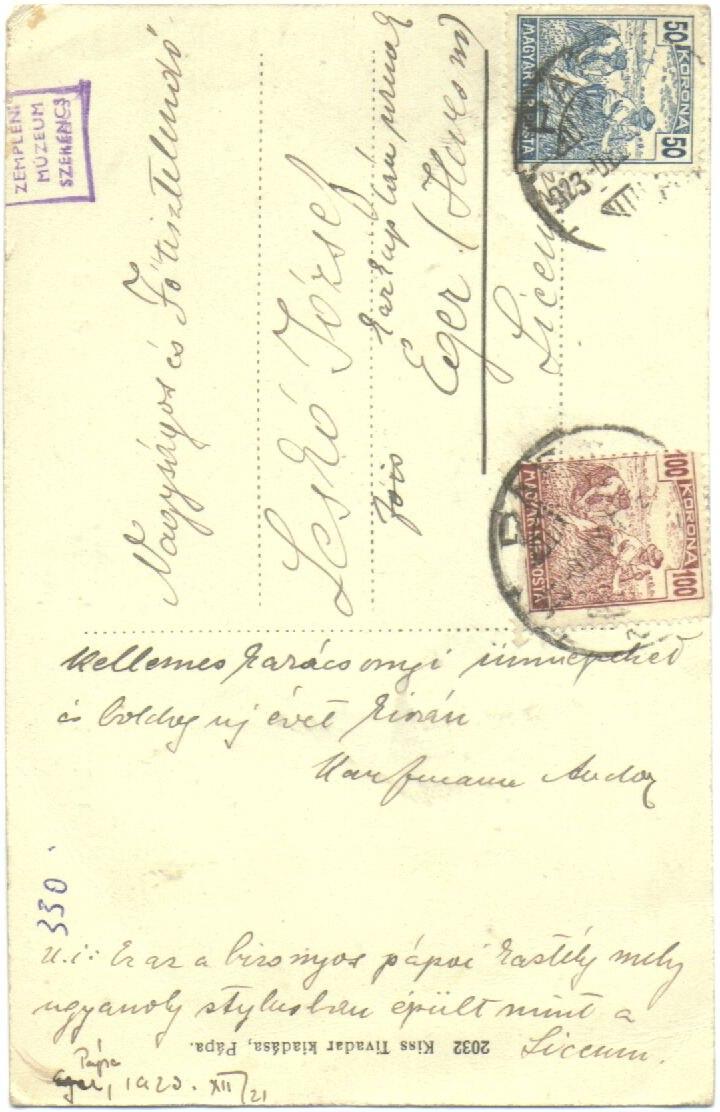 ZEMPLÉNI
MÚZEUM
SZERENCS
Nagyságos és Főtisztelendő
Leskó József
káptalan urnak
Eger (Heves m)
Liceum
50 KORONA 50
MAGYAR KIR. POSTA
923
100 KORONA 100
MAGYAR KIR. POSTA
Kellemes karácsonyi ünnepeket
és boldog uj évet kíván
Kaufmann Andor
330.
U.i: Ez az a bizonyos pápai kastély mely
ugyanoly stylusban épült mint a
Liceum.
Pápa
Eger, 1923. XII/21
2032 Kiss Tivadar kiadása, Pápa.